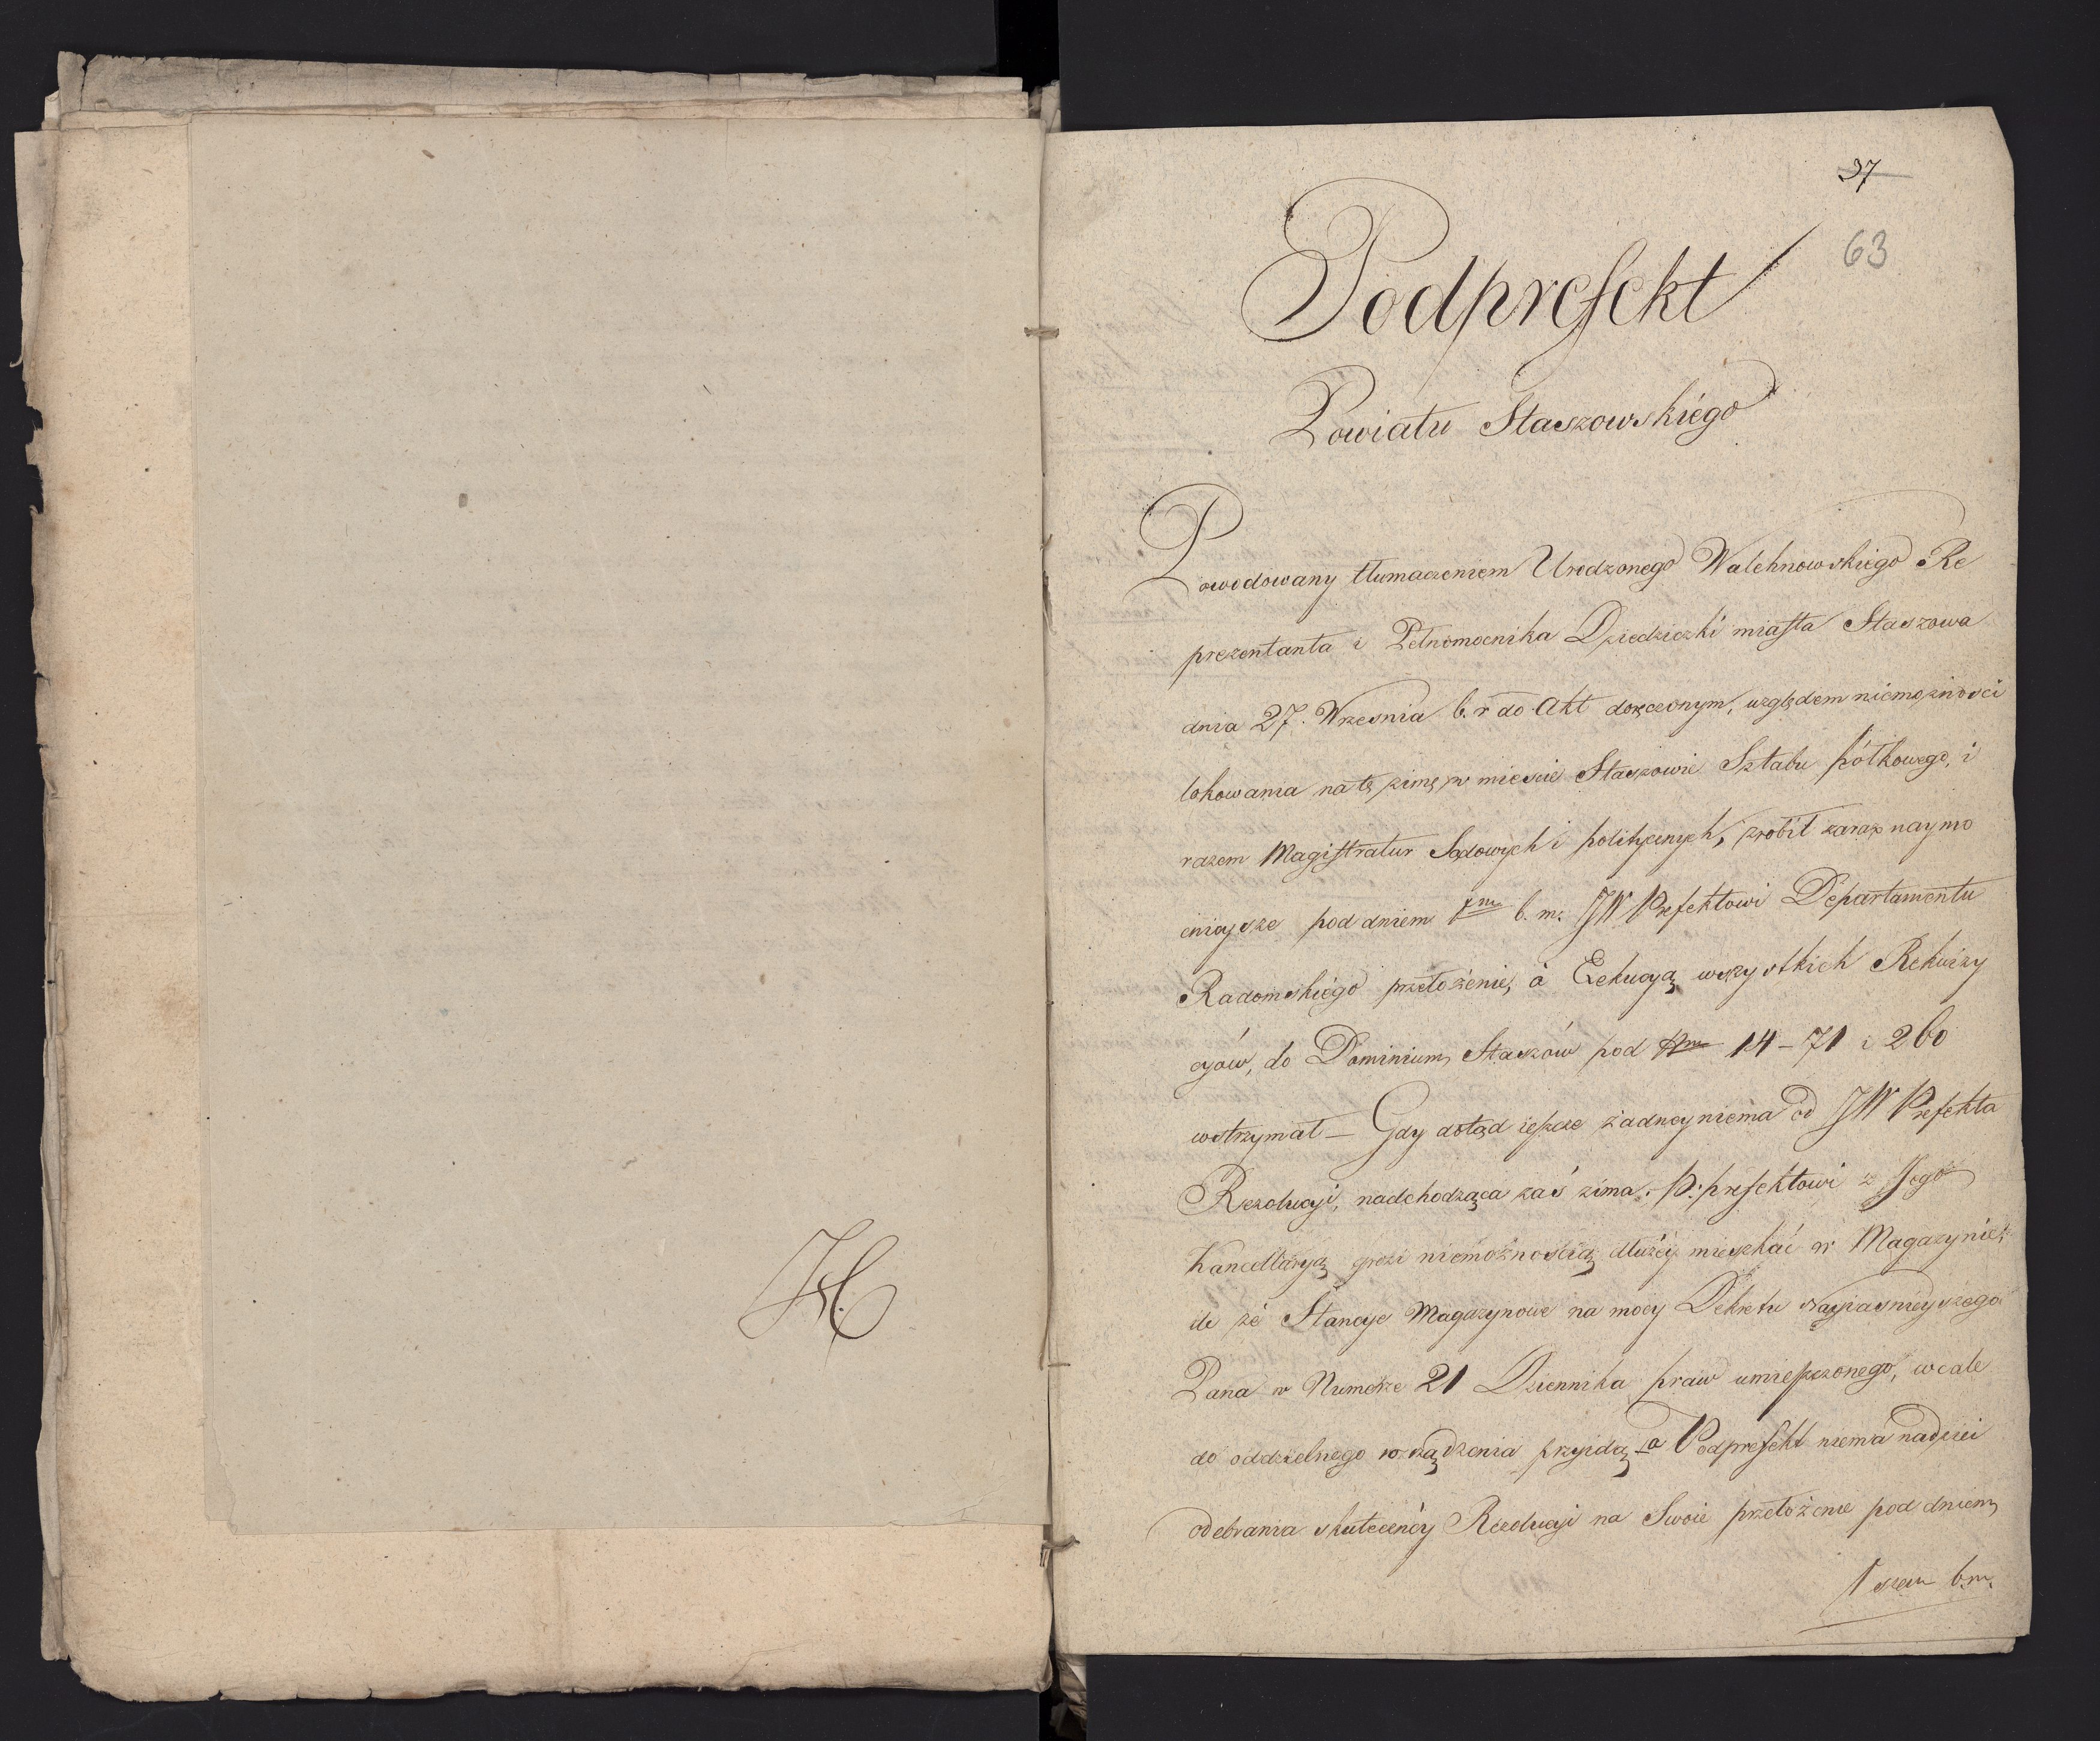 JH.
37
63
Podprefekt
Powiatu Staszowskiégo
Powodowany tłumaczeniem Urodzonego Walchnowskiego Re
prezentanta i Pełnomocnika Dziedziczki miasta Staszowa
dnia 27. Wrzesnia b. r do Akt doręczonym, względem niemożności
lokowania na tę zimę w miescie Staszowie Sztabu półkowego, i
razem Magistratur Sądowych i politycznych, zrobił zaraz naymo
cnieysze pod dniem b. m. JW Prefektowi Departamentu
Radomskiégo przełożenie, á Exekucyą wszystkich Rekwizy
cyów, do Dominium Staszów pod 14 - 71 i 260
wstrzymał — Gdy dotąd ieszcze żadney niema od JW Prefekta
Rezolucyi, nadchodząca zaś zima. P: prefektowi z Jego
Kancellaryą grozi niemożnością dłużéy mieszkać w Magazynie,
ile że Stancye Magazynowe na mocy Dekretu Nayiasnieyszego
Pana w Numerze 21 Dziennika praw umieszczonego, wcale
do oddzielnego rozrządzenia przyidą, a Podprefekt niema nadziei
odebrania skutecznéy Rezolucyi na Swoie przełożenie pod dniem
1szem b. m.